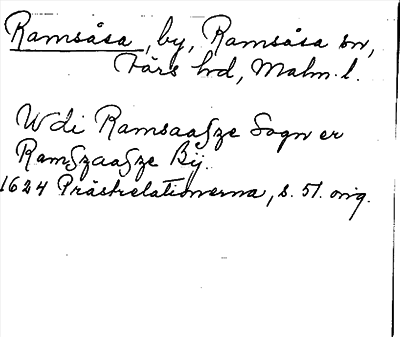 Ramsåsa, by, Ramsåsa sn,
Färs hd, Malm. l.
Wdi Ramsaaſze Sogn er
Ramſzaaſze Bÿ.
1624 Prästrelationerna, s. 51. orig.